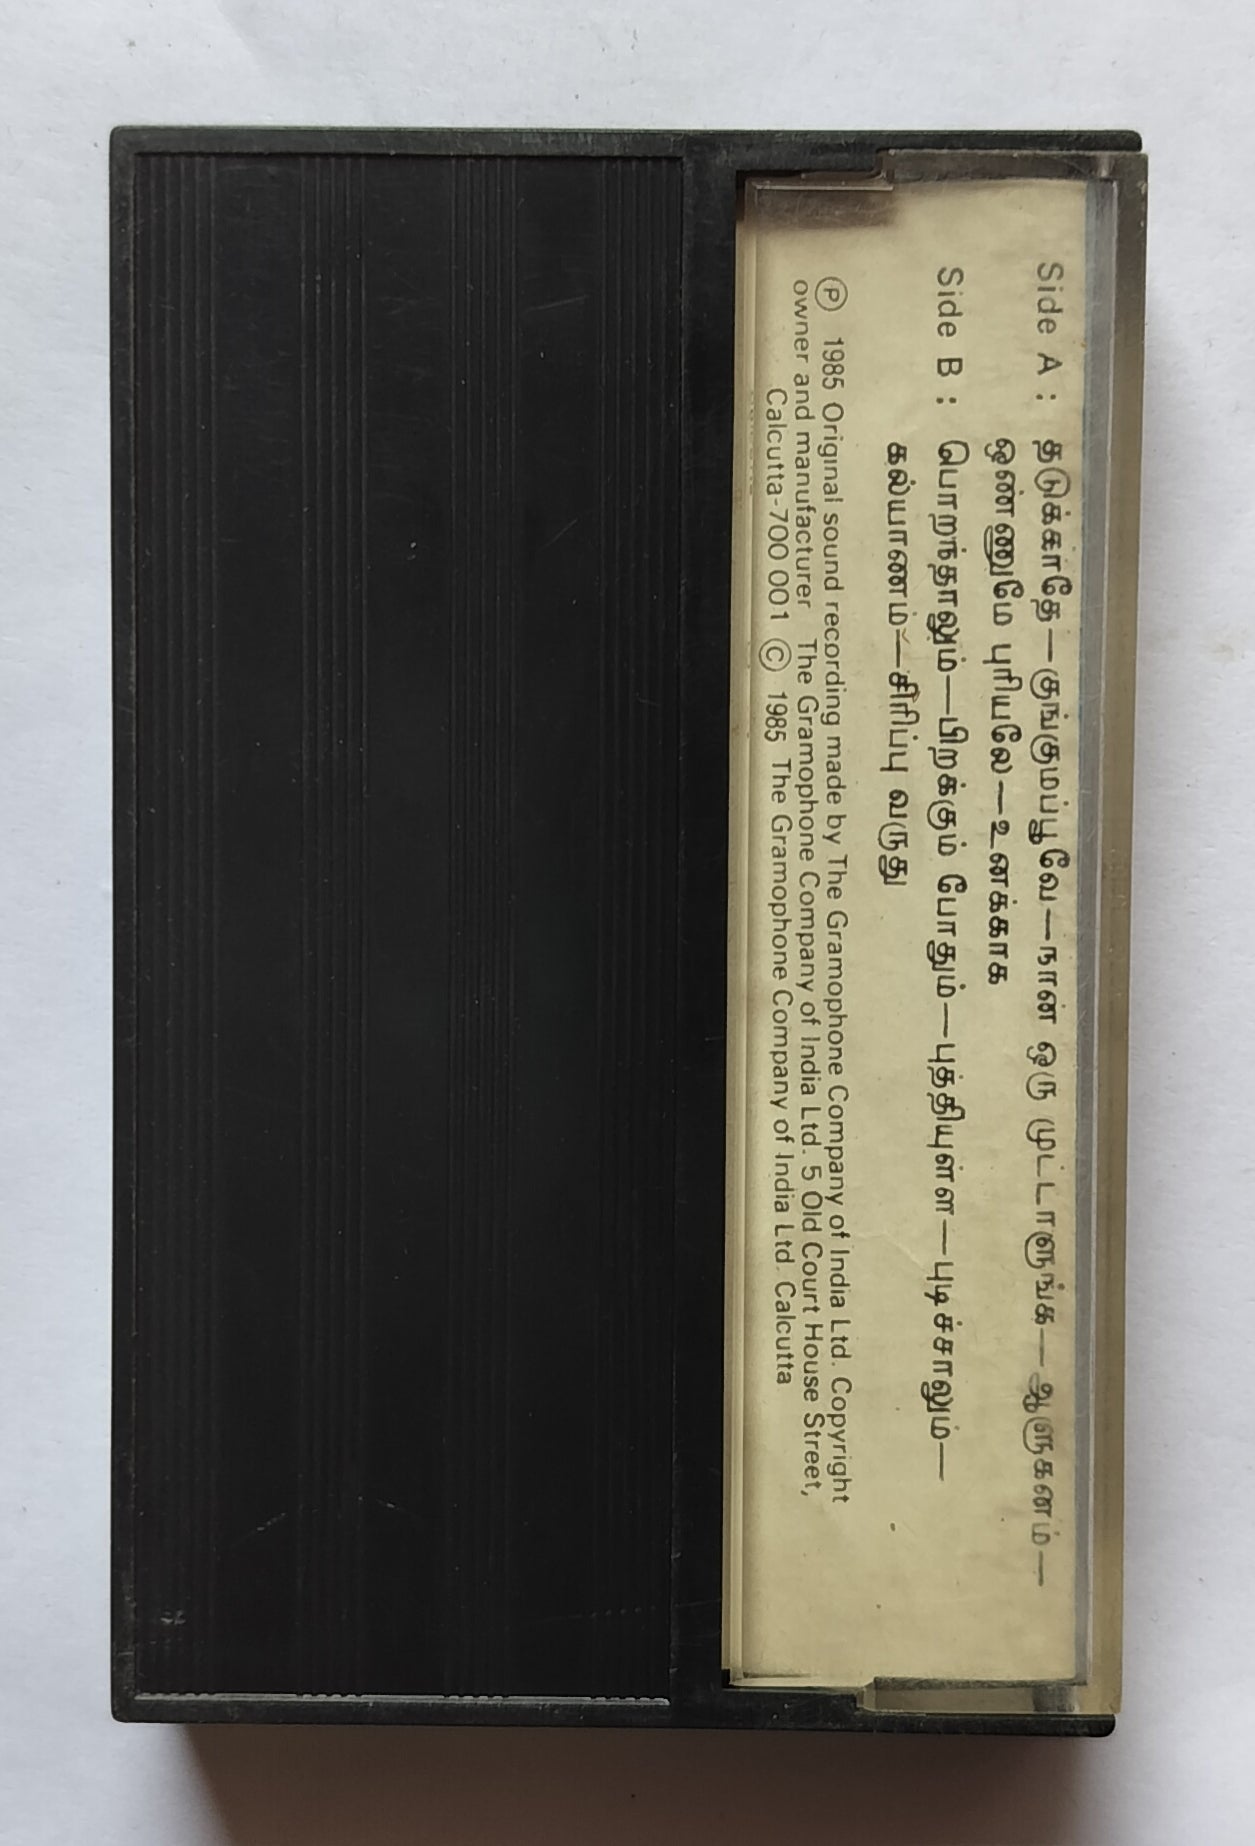 Side A : தடுக்காதே—குங்குமப்பூவே—நான் ஒரு முட்டாளுங்க—ஆளுகனம்—
ஒண்ணுமே புரியலே—உனக்காக
Side B : பொறந்தாலும்—பிறக்கும் போதும்—புத்தியுள்ள—புடிச்சாலும்—
கல்யாணம்—சிரிப்பு வருது
Ⓟ 1985 Original sound recording made by The Gramophone Company of India Ltd. Copyright
owner and manufacturer The Gramophone Company of India Ltd. 5 Old Court House Street,
Calcutta-700 001 Ⓒ 1985 The Gramophone Company of India Ltd. Calcutta